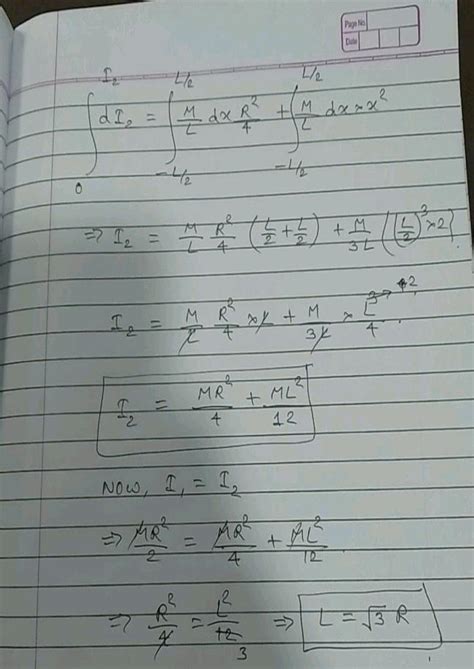 Page No.
Date
∫₀^{I₂} dI₂ = ∫_{-L/2}^{L/2} M/L dx R²/4 + ∫_{-L/2}^{L/2} M/L dx × x²
⇒ I₂ = M/L R²/4 (L/2 + L/2) + M/3L ((L/2)³ × 2)
I₂ = M/L R²/4 × L + M/3L × L³/4 → 2
I₂ = MR²/4 + ML²/12
NOW, I₁ = I₂
⇒ MR²/2 = MR²/4 + ML²/12
⇒ R²/4 = L²/12 3 ⇒ L = √3 R